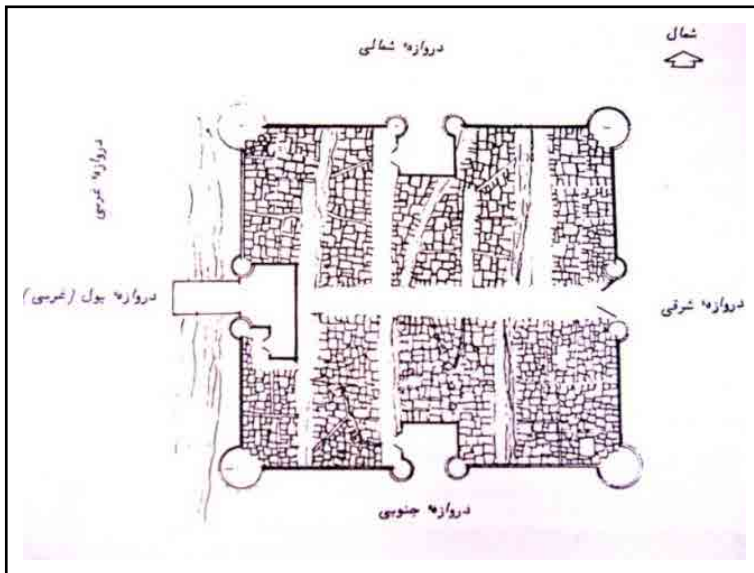 شمال
دروازه شمالی
دروازه غربی
دروازه پول (غربی)
دروازه شرقی
دروازه جنوبی